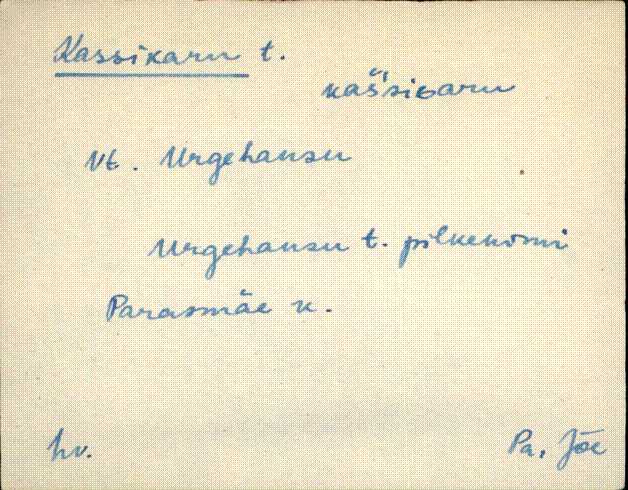 Kassikaru t.
kaššiGaru
Vt. Urgehansu
Urgehansu t. pilkenimi
Parasmäe k.
hv.
Pa, Jõe